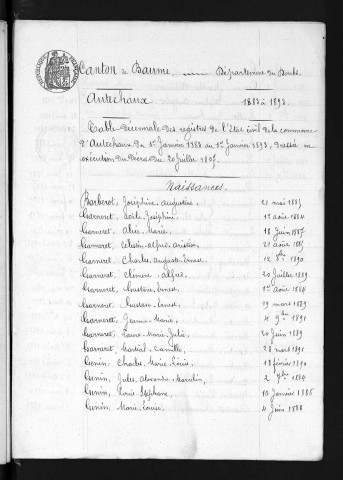 Canton de Baume Département du Doubs
Autechaux 1883 à 1893
Table Décennale des registres de l'État civil de la commune
d'Autechaux du 1er Janvier 1883 au 1er Janvier 1893, dressée en
exécution du Décret du 20 Juillet 1807.
Naissances.
Barberot, Joséphine Augustine, 28 mai 1885
Garneret, Joséphine, 17 août 1884
Garneret, Alix Marie, 18 Juin 1887
Garneret, Célestin Alfred, 21 août 1885
Garneret, Charles Auguste Ernest, 12 Xbre 1890
Garneret, Alfred, 20 Juillet 1889
Garneret, Gustave Ernest, 1er août 1884
Garneret, Gustave Ernest, 19 mars 1889
Garneret, Jeanne Marie, 4 9bre 1891
Garneret, Laure Marie Julie, 20 Juin 1889
Garneret, Martial Camille, 28 mars 1891
Génin, Charles Marie Louis, 18 février 1890
Génin, Jules Alexandre Marcelin, 2 7bre 1884
Génin, Louis Stéphane, 10 Janvier 1886
Génin, Marie Louise, 4 Juin 1888